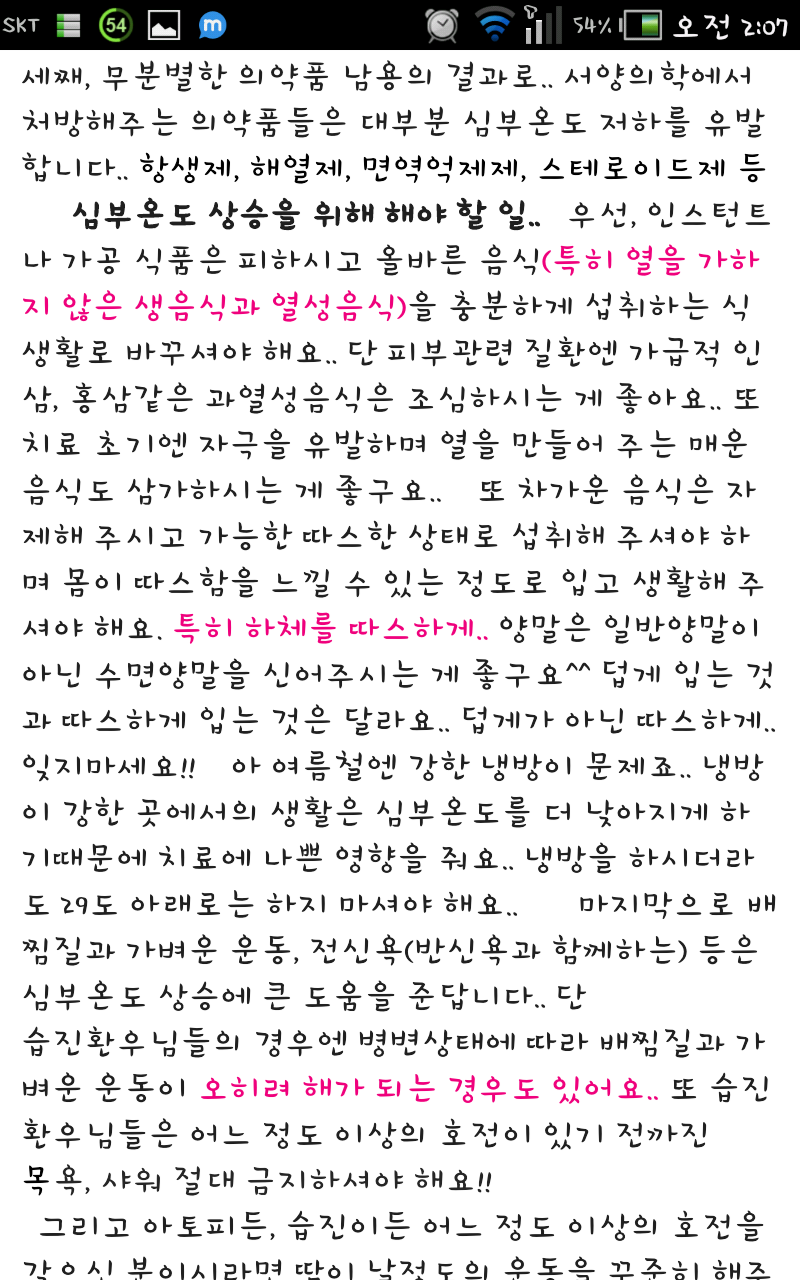 SKT 54 m 54% 오전 2:07
세째, 무분별한 의약품 남용의 결과로.. 서양의학에서
처방해주는 의약품들은 대부분 심부온도 저하를 유발
합니다.. 항생제, 해열제, 면역억제제, 스테로이드제 등
심부온도 상승을 위해 해야 할 일.. 우선, 인스턴트
나 가공 식품은 피하시고 올바른 음식(특히 열을 가하
지 않은 생음식과 열성음식)을 충분하게 섭취하는 식
생활로 바꾸셔야 해요.. 단 피부관련 질환엔 가급적 인
삼, 홍삼같은 과열성음식은 조심하시는 게 좋아요.. 또
치료 초기엔 자극을 유발하며 열을 만들어 주는 매운
음식도 삼가하시는 게 좋구요.. 또 차가운 음식은 자
제해 주시고 가능한 따스한 상태로 섭취해 주셔야 하
며 몸이 따스함을 느낄 수 있는 정도로 입고 생활해 주
셔야 해요. 특히 하체를 따스하게.. 양말은 일반양말이
아닌 수면양말을 신어주시는 게 좋구요^^ 덥게 입는 것
과 따스하게 입는 것은 달라요.. 덥게가 아닌 따스하게..
잊지마세요!! 아 여름철엔 강한 냉방이 문제죠.. 냉방
이 강한 곳에서의 생활은 심부온도를 더 낮아지게 하
기때문에 치료에 나쁜 영향을 줘요.. 냉방을 하시더라
도 29도 아래로는 하지 마셔야 해요.. 마지막으로 배
찜질과 가벼운 운동, 전신욕(반신욕과 함께하는) 등은
심부온도 상승에 큰 도움을 준답니다.. 단
습진환우님들의 경우엔 병변상태에 따라 배찜질과 가
벼운 운동이 오히려 해가 되는 경우도 있어요.. 또 습진
환우님들은 어느 정도 이상의 호전이 있기 전까진
목욕, 샤워 절대 금지하셔야 해요!!
그리고 아토피든, 습진이든 어느 정도 이상의 호전을
갖으신 분이시라면 땀이 날정도의 운동을 꾸준히 해주